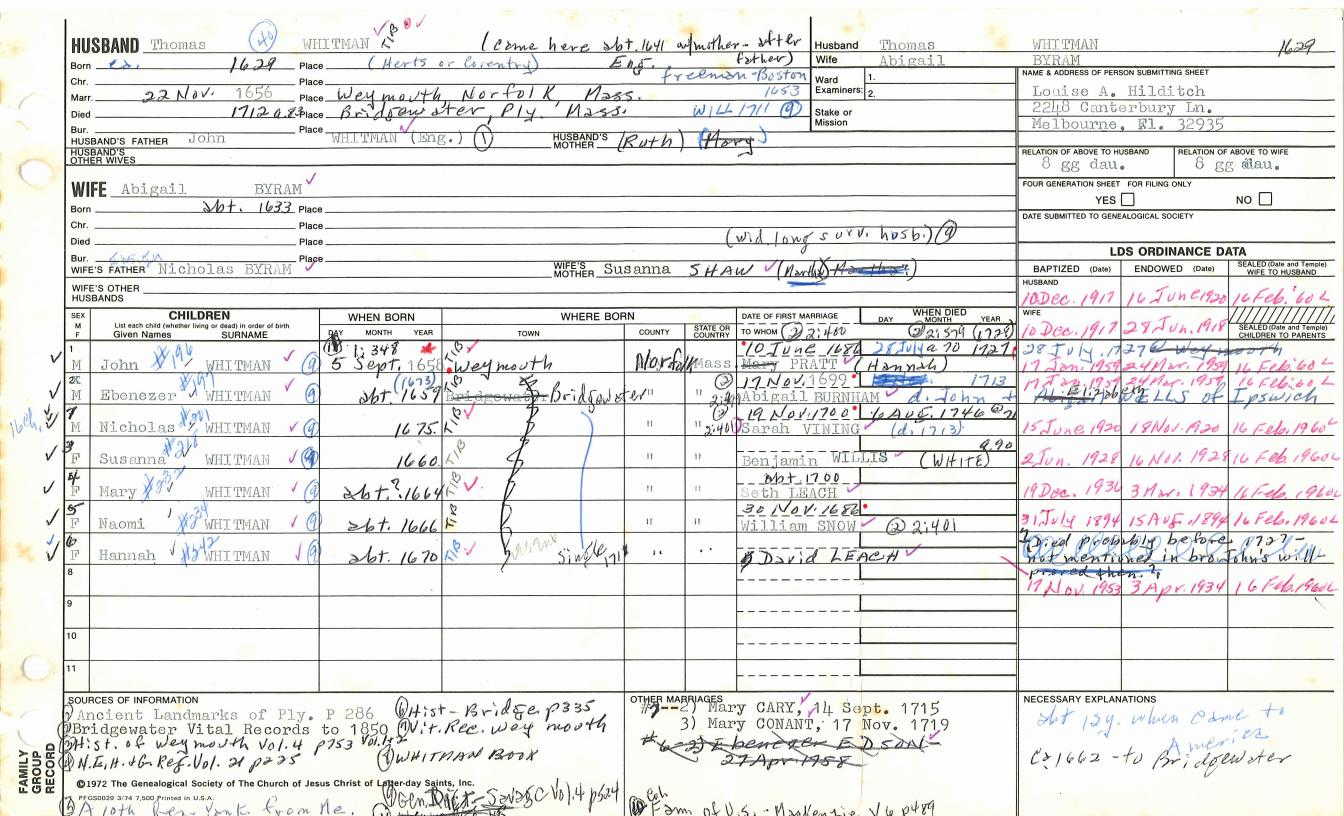 HUSBAND Thomas 40 WHITMAN TIB (came here abt. 1641 w/mother - after father)
Husband Thomas WHITMAN 1629
Wife Abigail BYRAM
Born ca. 1629 Place (Herts or Coventry) Eng. freeman-Boston 1653
Chr. Place
Marr. 22 Nov. 1656 Place Weymouth, Norfolk, Mass.
Died 1712 a.83 Place Bridgewater, Ply. Mass. WILL 1711 9
Bur. Place
Ward Examiners: 1. 2.
Stake or Mission
HUSBAND'S FATHER John WHITMAN (Eng.) 1 HUSBAND'S MOTHER (Ruth) (Mary)
HUSBAND'S OTHER WIVES
NAME & ADDRESS OF PERSON SUBMITTING SHEET
Louise A. Hilditch
2248 Canterbury Ln.
Melbourne, Fl. 32935
RELATION OF ABOVE TO HUSBAND RELATION OF ABOVE TO WIFE
8 gg dau. 8 gg dau.
FOUR GENERATION SHEET FOR FILING ONLY
YES NO
DATE SUBMITTED TO GENEALOGICAL SOCIETY
WIFE Abigail BYRAM
Born abt. 1633 Place
Chr. Place
Died Place (wid. long surv. hosb.) 9
Bur. Place
WIFE'S FATHER Nicholas BYRAM WIFE'S MOTHER Susanna SHAW (Martha)
WIFE'S OTHER HUSBANDS
LDS ORDINANCE DATA
BAPTIZED (Date) ENDOWED (Date) SEALED (Date and Temple) WIFE TO HUSBAND
HUSBAND
10 Dec. 1917 16 June 1920 16 Feb. '60 L
WIFE
10 Dec. 1917 28 Jun. 1918
SEALED (Date and Temple) CHILDREN TO PARENTS
SEX M F CHILDREN List each child (whether living or dead) in order of birth Given Names SURNAME
WHEN BORN DAY MONTH YEAR
WHERE BORN TOWN COUNTY STATE OR COUNTRY
DATE OF FIRST MARRIAGE TO WHOM 2 2:400
WHEN DIED DAY MONTH YEAR 2 2:579 (1728)
1 M John #196 WHITMAN 9 1:348 5 Sept. 1658 TIB Weymouth Norfolk Mass. 10 June 1686 Mary PRATT (Hannah) 28 July a 70 1727
28 July. 1727 @ Weymouth
17 Jan. 1959 24 Mar. 1959 16 Feb. '60 L
2 M Ebenezer #199 WHITMAN 9 (1673) abt. 1659 TIB Bridgewater Bridgewater " " 17 Nov. 1699 Abigail BURNHAM d. John + 1713
Elizabeth WELLS of Ipswich
7 M Nicholas #201 WHITMAN 9 1675 TIB " " 2:401 19 Nov. 1700 Sarah VINING (d. 1713) 6 AUG. 1746
15 June 1920 18 Nov. 1920 16 Feb. 1960 L
3 F Susanna WHITMAN 9 1660 TIB " " Benjamin WILLIS (WHITE) a.90
2 Jun. 1928 16 Nov. 1928 16 Feb. 1960 L
4 F Mary #232 WHITMAN 9 abt.? 1664 TIB " " abt 1700 Seth LEACH
19 Dec. 1936 3 Mar. 1934 16 Feb. 1960 L
5 F Naomi #234 WHITMAN 9 abt. 1666 TIB " " 30 NOV. 1686 William SNOW 2 2:401
31 July 1894 15 Aug. 1894 16 Feb. 1960 L
6 F Hannah #242 WHITMAN 9 abt. 1670 TIB Single 1711 " " David LEACH
? Died probably before 1727-
not mentioned in bro John's will-
proved then.?
17 Nov. 1953 3 Apr. 1934 16 Feb. 1960 L
8
9
10
11
SOURCES OF INFORMATION
Ancient Landmarks of Ply. P 286
Bridgewater Vital Records to 1850
Hist. of Weymouth Vol. 4 p753
N.E.H.+G. Reg. Vol. 21 p225
Hist - Bridge p335
Vit. Rec. Weymouth Vol. 1+2
WHITMAN BOOK
©1972 The Genealogical Society of The Church of Jesus Christ of Latter-day Saints, Inc.
PFGS0029 3/74 7,500 Printed in U.S.A.
Gen. Dict - Savage Vol. 4 p524
OTHER MARRIAGES
2) Mary CARY, 14 Sept. 1715
3) Mary CONANT, 17 Nov. 1719
#6-2) Ebenezer EDSON-
27 Apr 1758
Col. Fam of U.S. - Mackenzie V6 p489
NECESSARY EXPLANATIONS
abt 12y. when came to
America
Ca 1662 - to Bridgewater
FAMILY GROUP RECORD